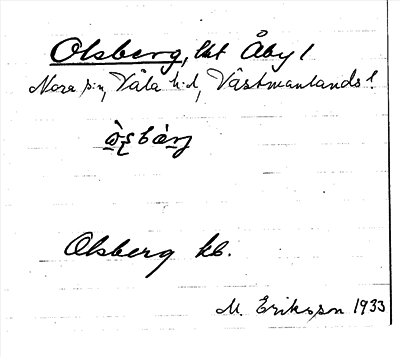 Olsberg, lht Åby 1
Nora sn, Våla hd, Västmanlands l.
Olsberg kb.
M. Eriksson 1933